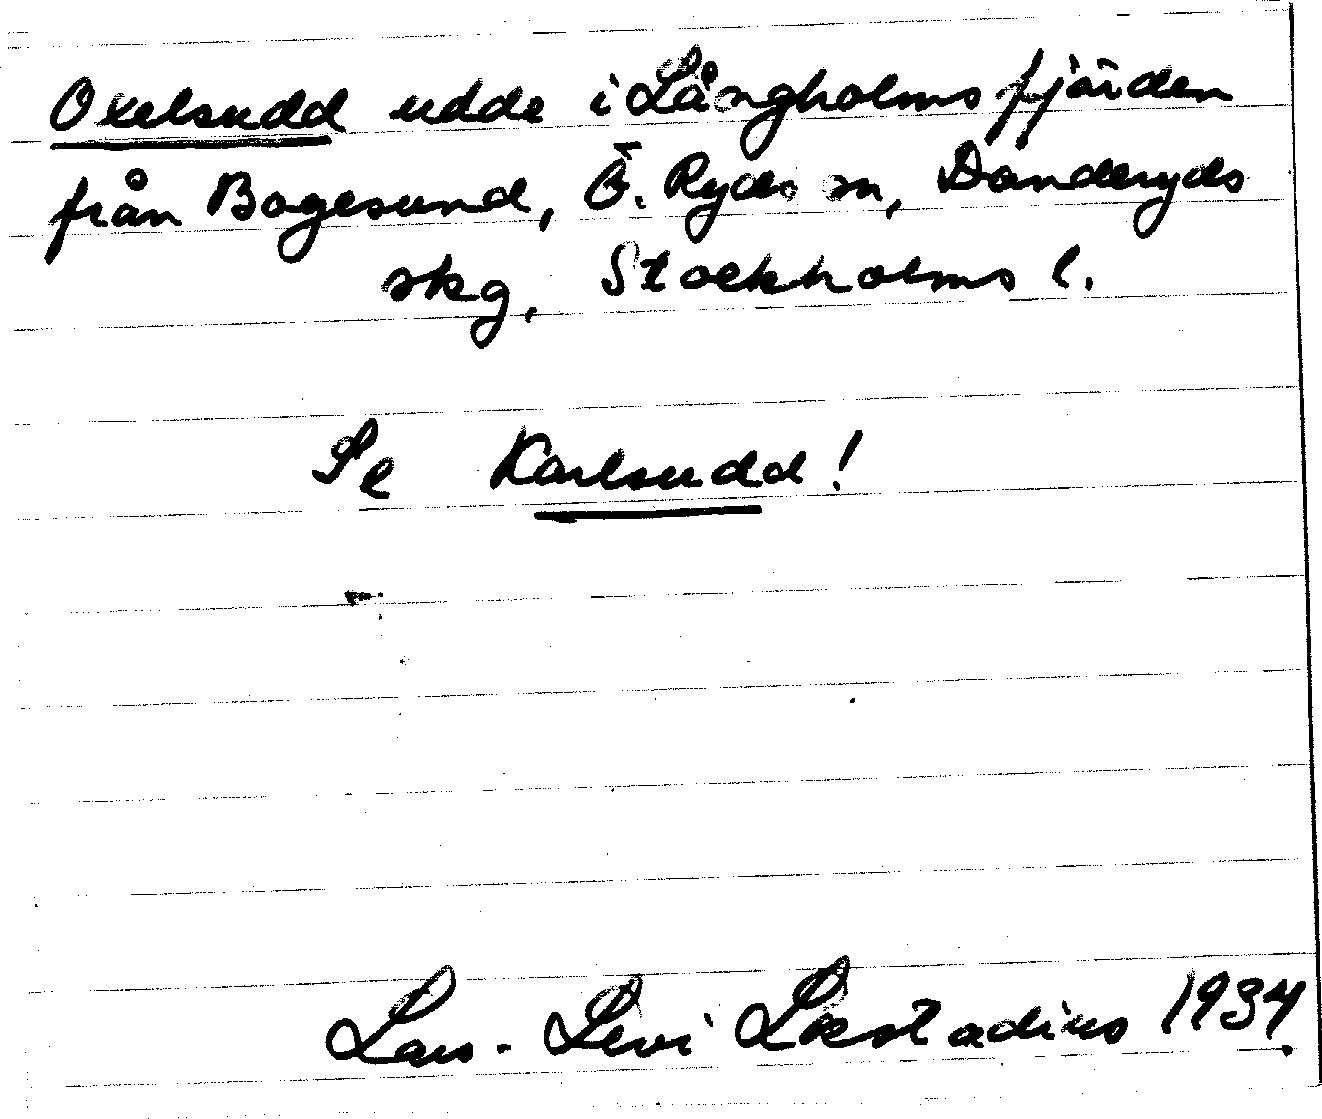 Oxelsudd udde i Långholmsfjärden
från Bogesund, Ö. Ryds sn, Danderyds
skg, Stockholms l.
Se Karlsudd!
Lars-Levi Læstadius 1934.